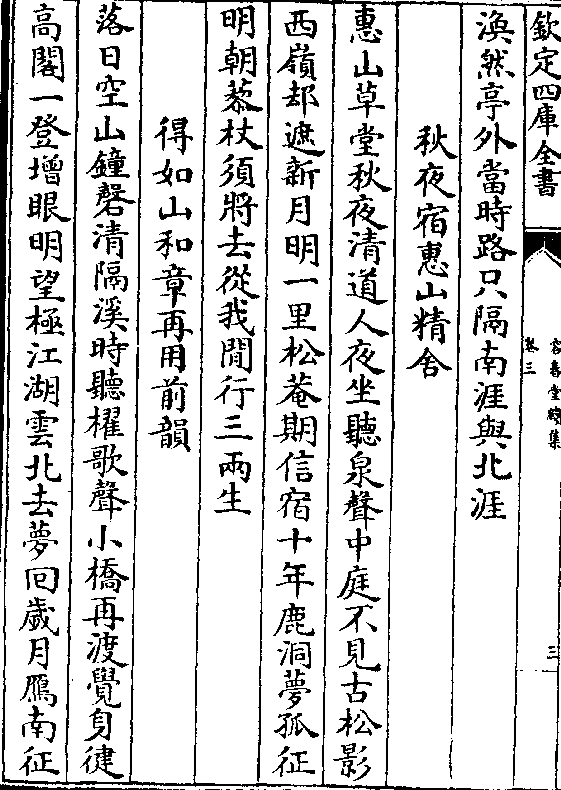 欽定四庫全書
容春堂續集
卷三
三
渙然亭外當時路只隔南涯與北涯
秋夜宿惠山精舍
惠山草堂秋夜清道人夜坐聽泉聲中庭不見古松影
西嶺却遮新月明一里松菴期信宿十年鹿洞夢孤征
明朝藜杖須將去從我閒行三兩生
得如山和章再用前韻
落日空山鐘磬清隔溪時聽櫂歌聲小橋再渡覺身健
高閣一登增眼明望極江湖雲北去夢回歲月鴈南征